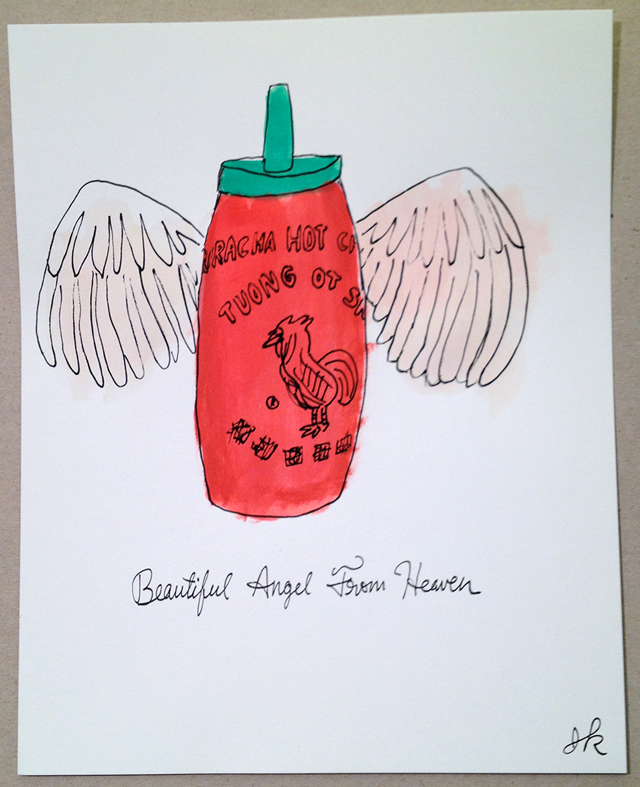 RACHA HOT CH
TUONG OT SR
Beautiful Angel From Heaven